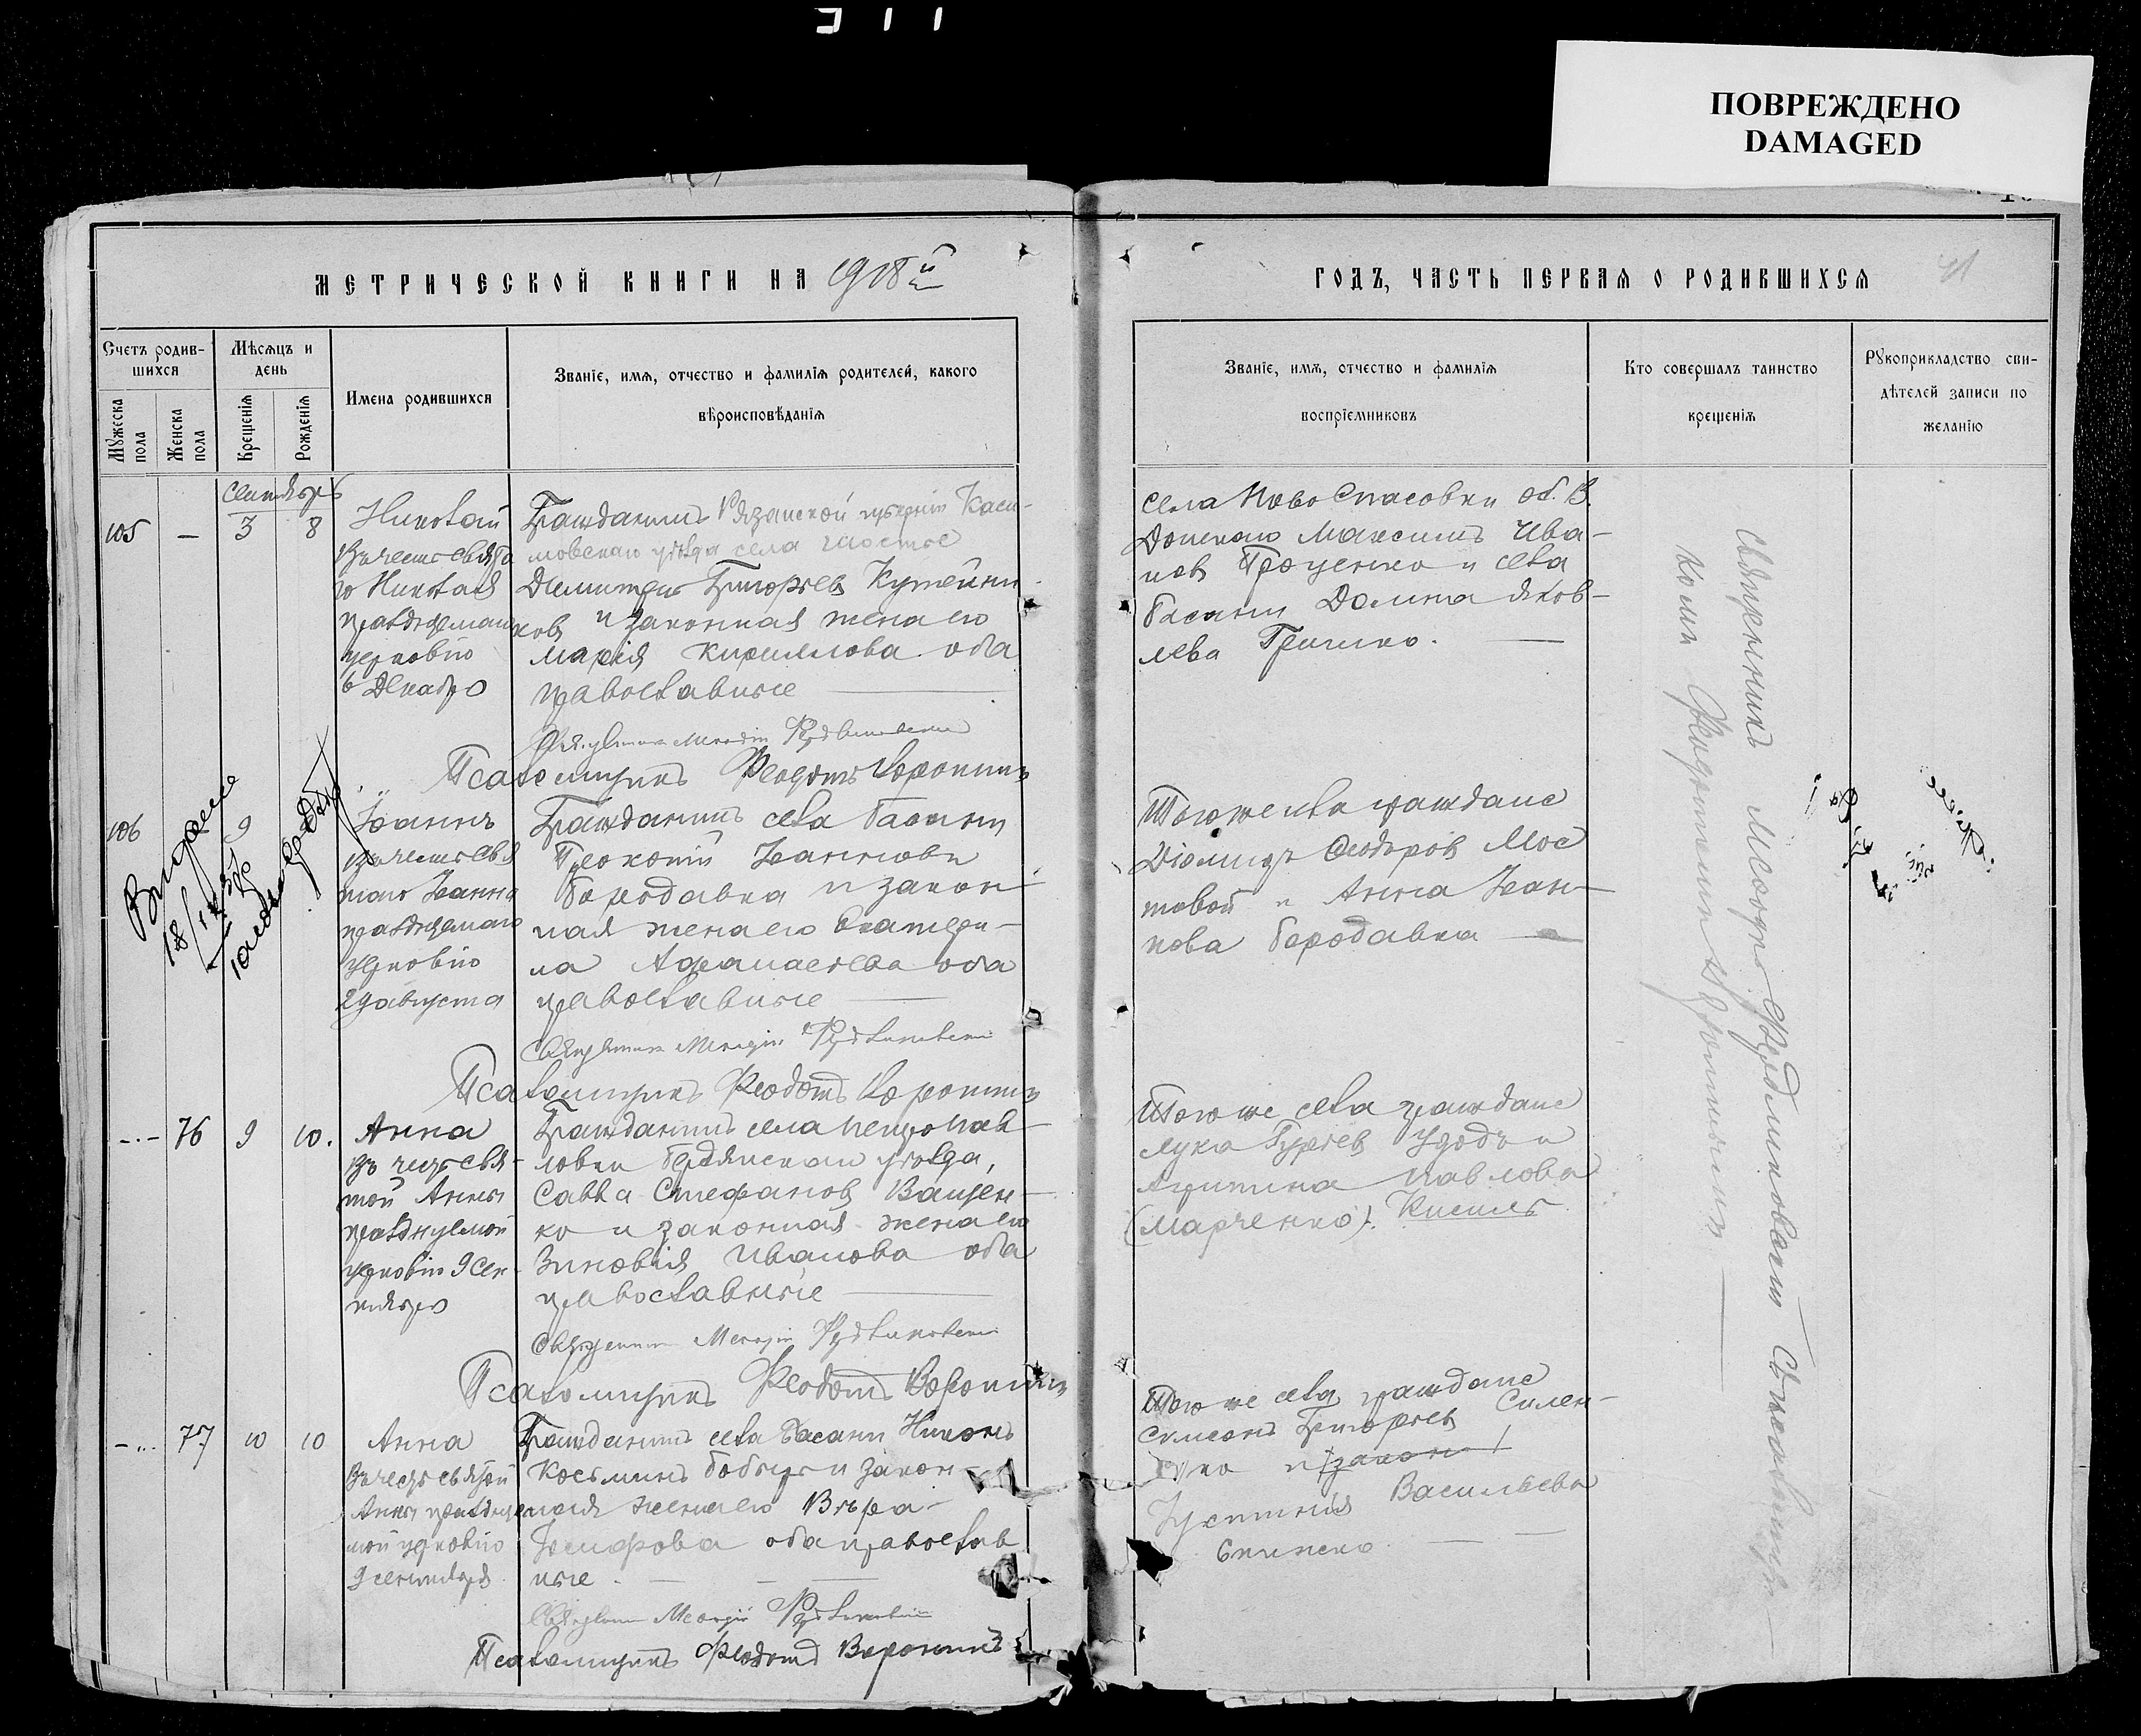 ПОВРЕЖДЕНО
DAMAGED
МЕТРИЧЕСКОЙ КНИГИ НА 1918й
ГОДЪ, ЧАСТЬ ПЕРВАЯ О РОДИВШИХСЯ
41
Счетъ родив-
шихся
Мѣсяцъ и
день
Мужеска
пола
Женска
пола
Крещенія
Рожденія
Имена родившихся
Званіе, имя, отчество и фамилія родителей, какого
вѣроисповѣданія
Званіе, имя, отчество и фамилія
воспріемниковъ
Кто совершалъ таинство
крещенія
Рукоприкладство сви-
дѣтелей записи по
желанію
Сентябрь
105 — 3 8
Николай
Въ честь свято
го Николая
празднуемаго
церковію
6 Декабря
Гражданинъ Рязанской губерніи Каси-
мовскаго уѣзда села
Димитрій Григорьевъ Кутейни-
ковъ и законная жена его
Марія Кириллова оба
православные
Псаломщикъ Феодотъ Воронинъ
Села Ново Спасовки об. В.
Донского Максимъ Ива-
новъ Проценко и села
Басани Домна Яков-
лева Гришко.
106 9
Іоаннъ
въ честь свя
таго Іоанна
празднуемаго
церковію
29 августа
Гражданинъ села Басани
Прокопій Іоанновъ
Бородавка и закон-
ная жена его Екатери-
на Афанасьева оба
православные
Псаломщикъ Феодотъ Воронинъ
Того же села граждане
Діомидъ Феодоровъ Мос
товой и Анна Іоан-
нова Бородавка
76 9 10.
Анна
въ честь свя-
той Анны
празднуемой
церковію 9 сен-
тября
Гражданинъ села Петропав-
ловки Бердянскаго уѣзда,
Савва Стефановъ Ващен-
ко и законная жена его
Зиновія Иванова оба
православные
Псаломщикъ Феодотъ Воронинъ
Того же села граждане
Лука Гурьевъ Удодъ и
Агрипина Павлова
(Марченко). Кисиль
77 10 10
Анна
Въ честь святой
Анны празднуе
мой церковію
9 сентября
Гражданинъ села Басани Никонъ
Косьминъ Бобырь и закон-
ная жена его Вѣра
Іосифова оба православ
ные
Псаломщикъ Феодотъ Воронинъ
Того же села граждане
Симеонъ Григорьевъ Силен-
ко и закон
Іустинія Васильева
Священникъ
съ псаломщикомъ
Феодотомъ Воронинымъ
Выдано